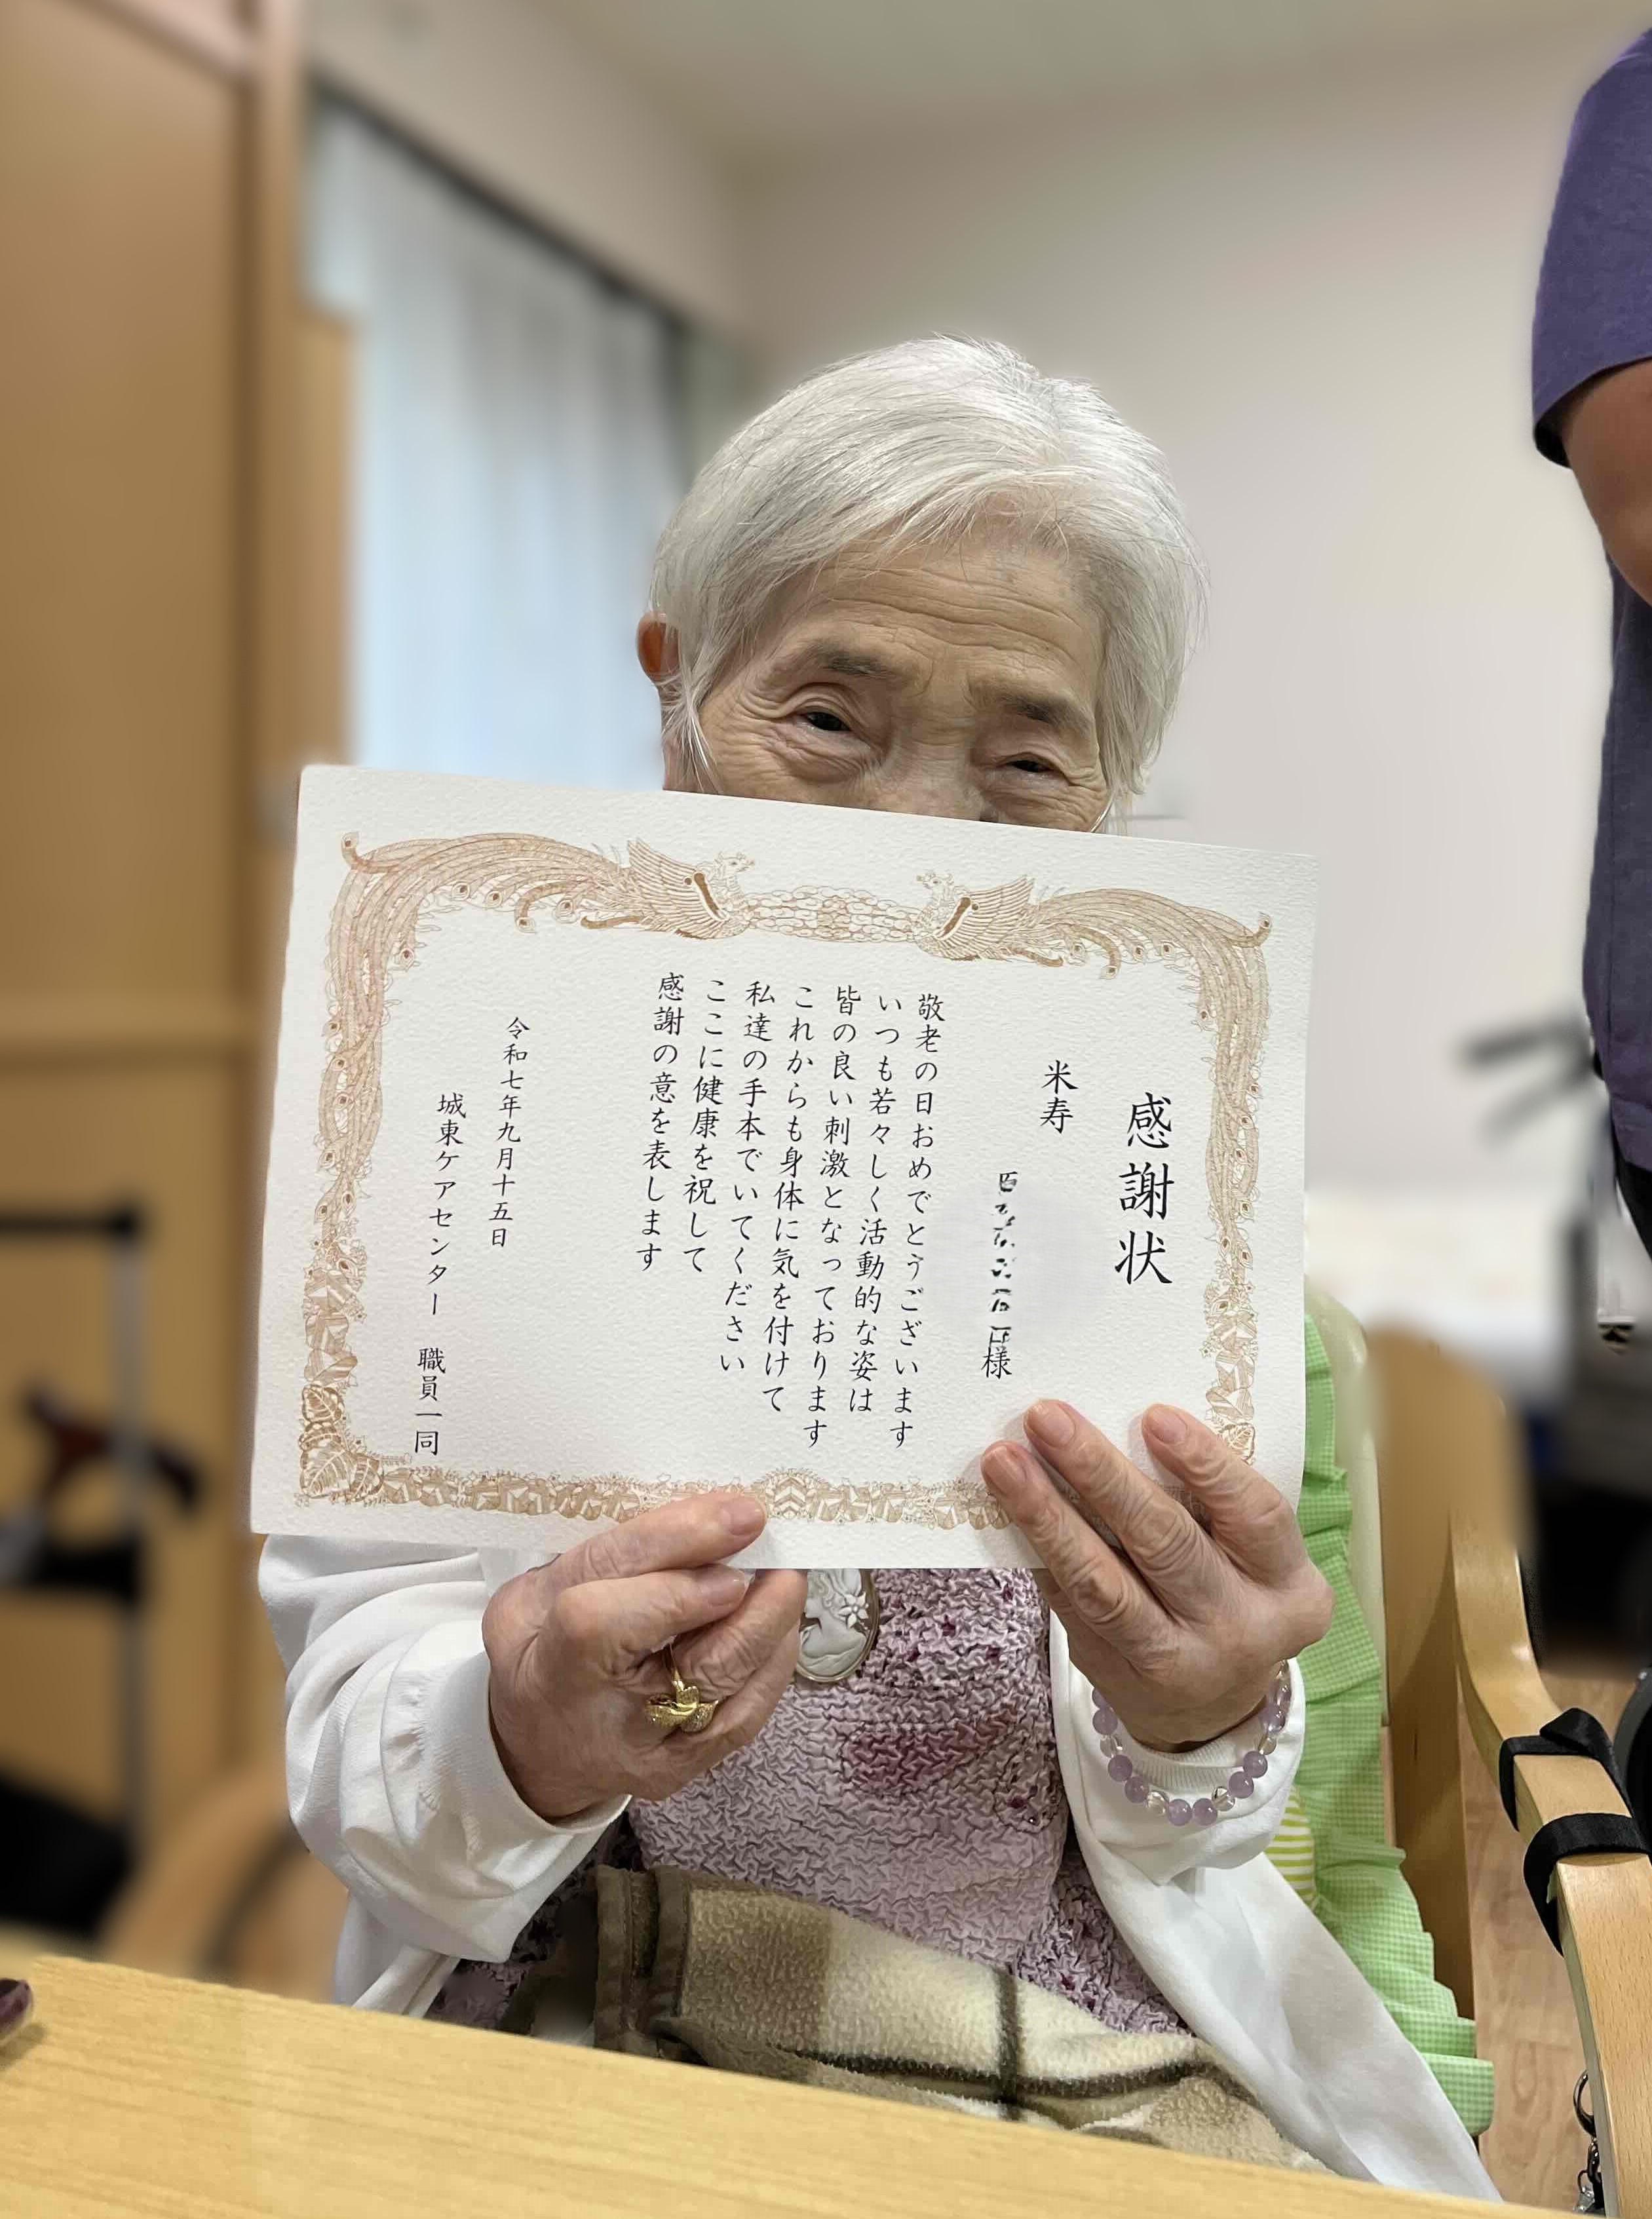 感謝状
米寿
様
敬老の日おめでとうございます
いつも若々しく活動的な姿は
皆の良い刺激となっております
これからも身体に気を付けて
私達の手本でいてください
ここに健康を祝して
感謝の意を表します
令和七年九月十五日
城東ケアセンター 職員一同